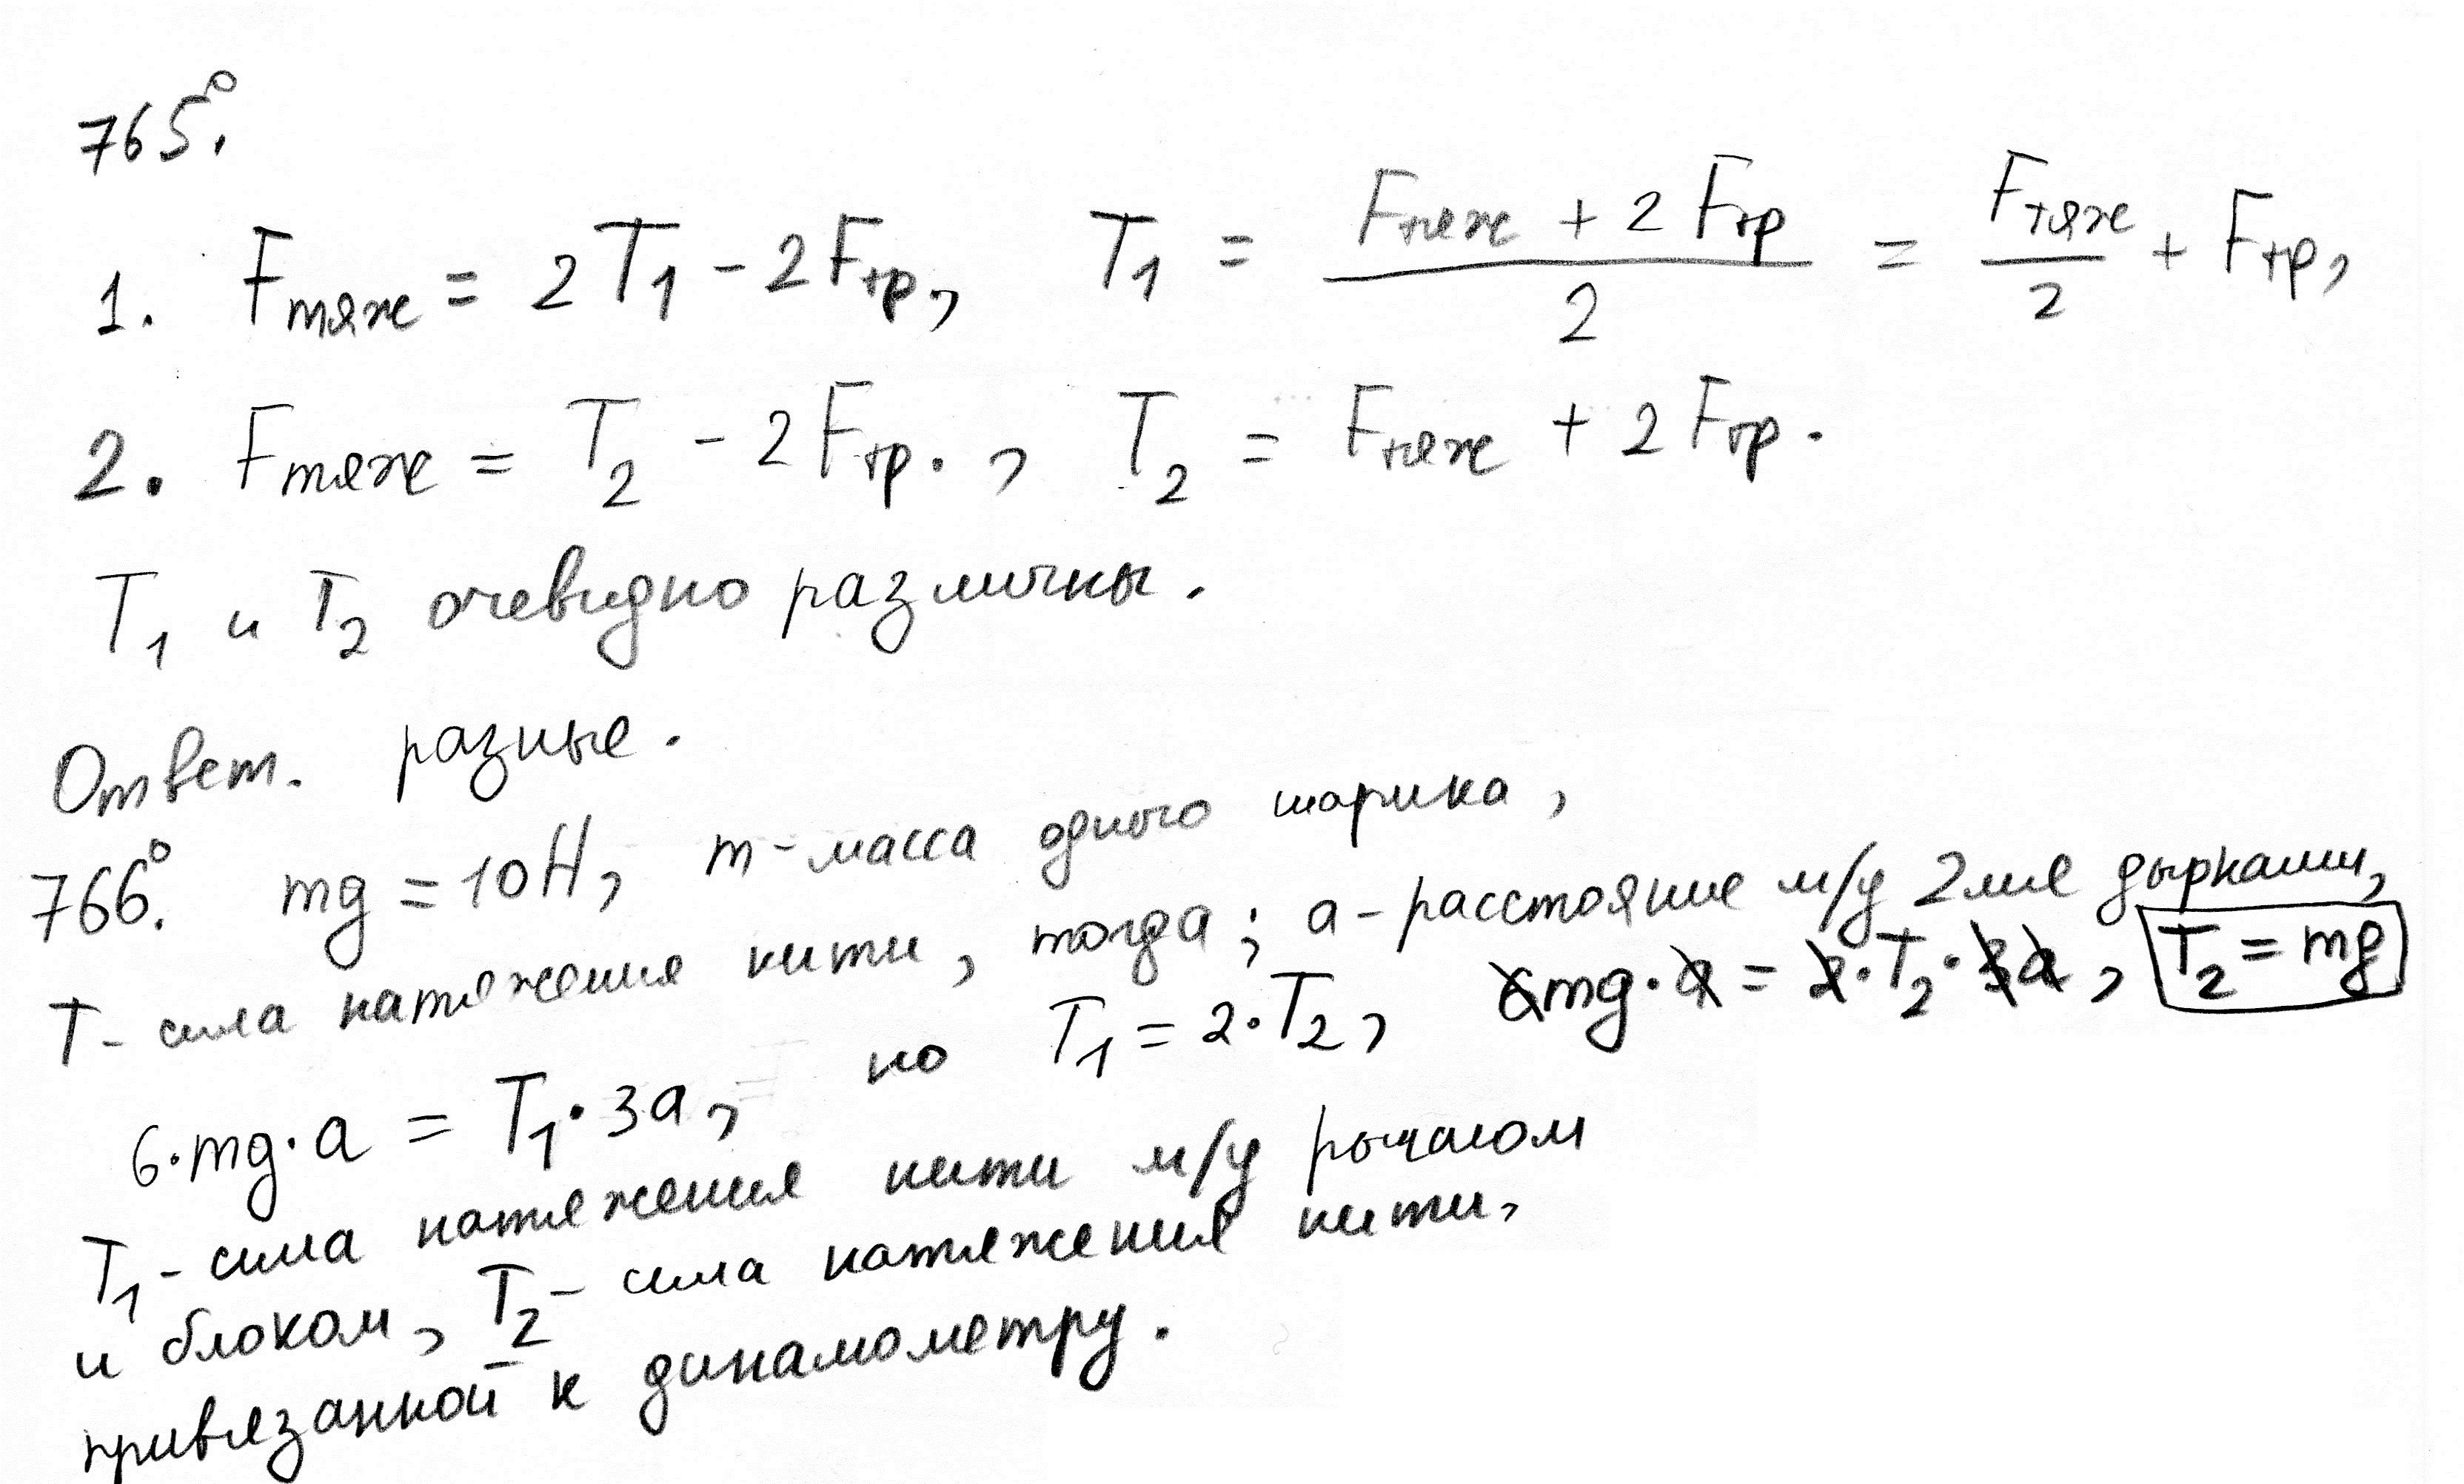 765°.
1. Fтяж = 2T₁ - 2Fтр, T₁ = (Fтяж + 2Fтр)/2 = Fтяж/2 + Fтр,
2. Fтяж = T₂ - 2Fтр., T₂ = Fтяж + 2Fтр.
T₁ и T₂ очевидно различны.
Ответ. разные.
766°. mg = 10Н, m - масса одного шарика,
T - сила натяжения нити, тогда; a - расстояние м/у 2мя дырками,
6·mg·a = T₁·3a, но T₁ = 2·T₂, 6mg·a = 2·T₂·3a, T₂ = mg
T₁ - сила натяжения нити м/у рычагом
и блоком, T₂ - сила натяжения нити,
привязанной к динамометру.